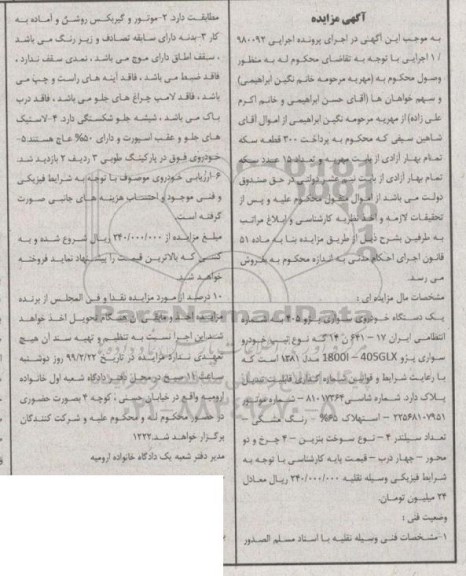 آگهی مزایده
به موجب این آگهی در اجرای پرونده اجرایی ۹۸۰۰۹۲
/ ۱ اجرایی با توجه به تقاضای محکوم له به منظور
وصول محکوم به (مهریه مرحومه خانم نگین ابراهیمی)
و سهم خواهان ها (آقای حسن ابراهیمی و خانم اکرم
علی زاده) از مهریه مرحومه نگین ابراهیمی از اموال آقای
شاهین سیفی که محکوم به پرداخت ۳۰۰ قطعه سکه
تمام بهار آزادی از بابت مهریه و تعداد ۱۵ عدد سکه
تمام بهار آزادی از بابت نیم عشر دولتی در حق صندوق
دولت می باشد از اموال منقول محکوم علیه و پس از
تحقیقات لازمه و اخذ نظریه کارشناسی و ابلاغ مراتب
به طرفین بشرح ذیل از طریق مزایده بنا به ماده ۵۱
قانون اجرای احکام مدنی به اندازه محکوم به فروش
می رسد.
مشخصات مال مزایده ای :
یک دستگاه خودروی سواری پژو ۴۰۵ به شماره
انتظامی ایران ۱۷ – ۶۴۱ ن ۱۴ که نوع تیپ خودرو
سواری پژو 1800I – 405GLX مدل ۱۳۸۱ است که
با رعایت شرایط و قوانین شماره گذاری قابلیت تبدیل
پلاک دارد. شماره شاسی ۸۱۰۱۷۳۶۴ – شماره موتور
۲۲۵۶۸۱۰۷۹۵۱ – استهلاک ۶۵% رنگ مشکی –
تعداد سیلندر ۴ – نوع سوخت بنزین – ۴ چرخ و دو
محور – چهار درب – قیمت پایه کارشناسی با توجه به
شرایط فیزیکی وسیله نقلیه ۲۴۰/۰۰۰/۰۰۰ ریال معادل
۲۴ میلیون تومان.
وضعیت فنی :
۱-مشخصات فنی وسیله نقلیه با اسناد مسلم الصدور
مطابقت دارد. ۲-موتور و گیربکس روشن و آماده به
کار ۳-بدنه دارای سابقه تصادف و زیر رنگ می باشد
، سقف اطاق دارای موج می باشد ، نمدی سقف ندارد ،
فاقد ضبط می باشد ، فاقد آینه های راست و چپ می
باشد ، فاقد لامپ چراغ های جلو می باشد ، فاقد درب
باک می باشد ، شیشه جلو شکستگی دارد. ۴-لاستیک
های جلو و عقب اسپورت و دارای ۵۰% عاج هستند ۵-
خودروی فوق در پارکینگ طوبی ۳ ردیف ۲ بازدید شد.
۶-ارزیابی خودروی موصوف با توجه به شرایط فیزیکی
و فنی موجود و احتساب هزینه های جانبی صورت
گرفته است.
مبلغ مزایده از ۲۴۰/۰۰۰/۰۰۰ ریال شروع شده و به
کسی که بالاترین قیمت را پیشنهاد نماید فروخته
خواهد شد.
۱۰ درصد از مورد مزایده نقدا و فی المجلس از برنده
مزایده اخذ و مابقی آن هنگام تحویل اخذ خواهد
شد. این اجرا نسبت به تنظیم و تهیه سند آن هیچ
تعهدی ندارد. مزایده در تاریخ ۹۹/۲/۲۲ روز دوشنبه
ساعت ۱۱ صبح در محل دفتر دادگاه شعبه اول خانواده
ارومیه واقع در خیابان حسنی ، کوچه ۴ بصورت حضوری
در حضور محکوم له و محکوم علیه و شرکت کنندگان
برگزار خواهد شد. ۱۲۲۲
مدیر دفتر شعبه یک دادگاه خانواده ارومیه
ParsNamadData